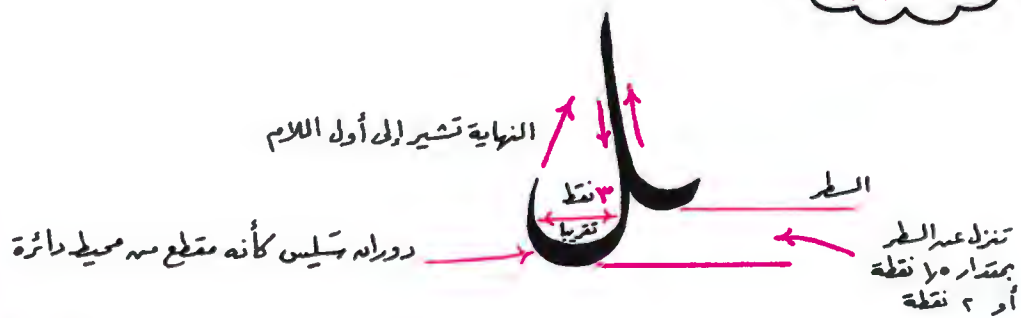 ـل
النهاية تشير إلى أول اللام
٣ نقط
تقريبا
السطر
دوران سَلِس كأنه مقطع من محيط دائرة
تنزل عن السطر
بمقدار ١,٥ نقطة
أو ٢ نقطة